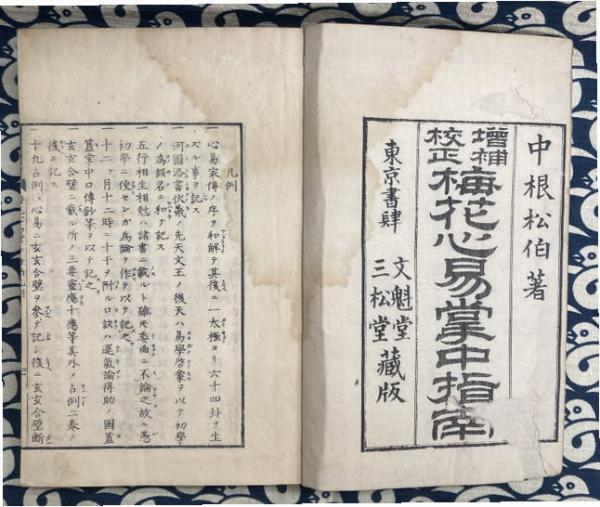 中根松伯著
増補
校正
梅花心易掌中指南
東京書肆
文魁堂
三松堂
藏版
凡例
一心易家傳ノ序ヲ和解テ其後ニ一太極ヨリ六十四卦ヲ生
スル事ヲ記ス
一河圖洛書伏羲ノ先天文王ノ後天ハ易學啓蒙ヲ以テ初學
ノ為假名ニ和テ記ス
一五行相生相尅ハ諸書ニ載ルト雖モ委曲ニ不論之故ニ愚
初學ニ便センガ為論ヲ作テ以テ記之
一十二ヶ月十二時ニ十干ヲ附ル口訣ハ運氣論得助ノ圖蓋
蓋掌中口傳鈔等ヲ以テ記之
一玄玄合璧ニ載ル所ノ三要靈應十應等其外ノ占例二巻ノ
後ニ記ス
一十九占例ハ心易ニ玄玄合璧ヲ参テ記シ後ニ玄玄合璧断